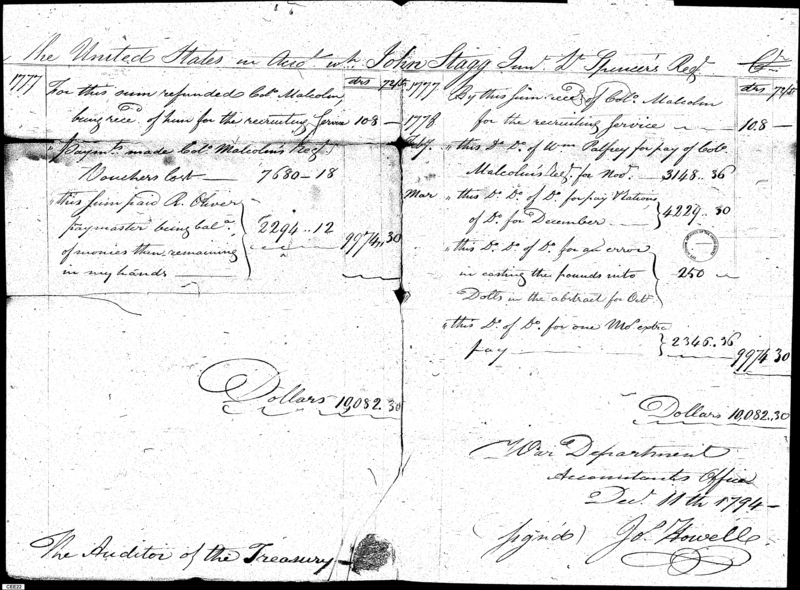 The United States in Acct. wth. John Stagg Junr. Lt. Spencer's Regt. Cr.
drs 72/90
1777 For this sum refunded Colo. Malcolm,
being recd. of him for the recruiting Service 108 —
" Paymts. made Colo. Malcolm's Regt.
Vouchers
7680 - 18
" this sum paid R. Oliver
paymaster being bala.
of monies then remaining
in my hands
2294 .. 12
9974 .. 30
Dollars 10,082 .. 30
The Auditor of the Treasury
drs 72/90
1777 By this sum recd. of Colo. Malcolm
1778 for the recruiting Service 108 —
" this Do. of Wm. Palfrey for pay of Colo.
Malcolm's Regt. for Novr. 3148 .. 36
Mar " this Do. Do. of Do. for pay & rations
of Do. for December 4229 .. 30
" this Do. Do. of Do. for an error
in casting the pounds into
Dolls in the abstract for Octr.
250
" this Do. of Do. for one Mo. extra
pay 2346 .. 36
9974 .. 30
Dollars 10,082 .. 30
War Department
Accountants Office
Decr. 11th 1794 —
(signd) Jo. Howell
CEE22